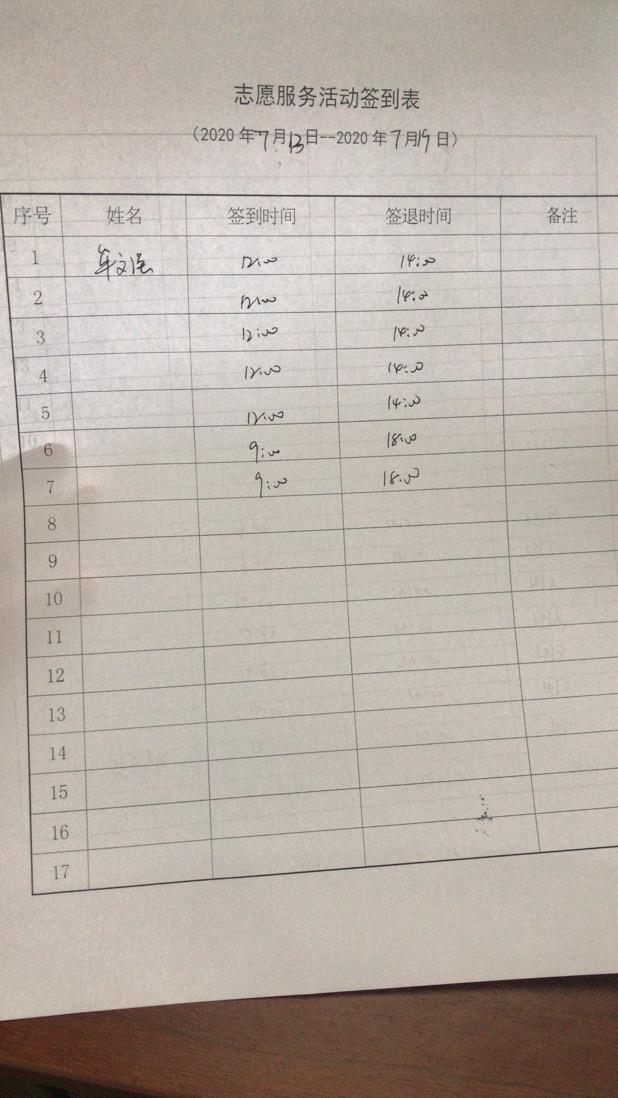 志愿服务活动签到表
（2020年7月13日--2020年7月19日）
序号 姓名 签到时间 签退时间 备注
1 车文强 12:00 14:00
2 12:00 14:00
3 12:00 14:00
4 12:00 14:00
5 12:00 14:00
6 9:00 18:00
7 9:00 18:00
8
9
10
11
12
13
14
15
16
17